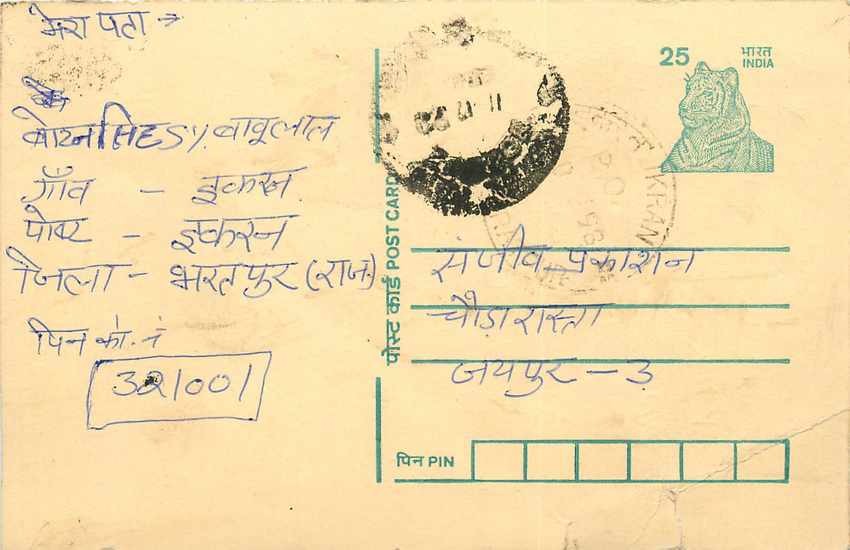 मेरा पता →
S/. बाबूलाल
गाँव - इकरन
पोस्ट - इकरन
जिला - भरतपुर (राज.)
पिन को. नं
321001
25
भारत
INDIA
पोस्ट कार्ड POST CARD
संजीव प्रकाशन
चौड़ा रास्ता
जयपुर - 3
पिन PIN